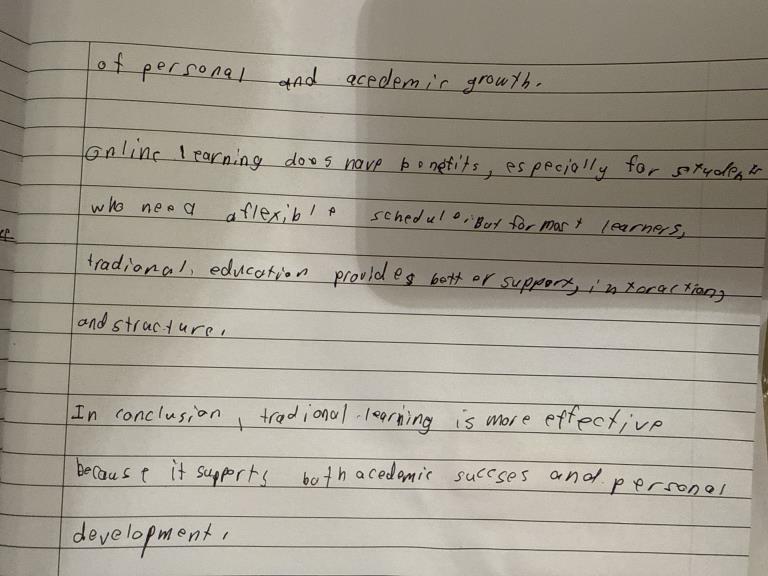 of personal and acedemic growth.
Online learning does have benefits, especially for students
who need aflexible schedule. But for most learners,
tradional, education provides better support, interaction,
and structure.
In conclusion, tradional learning is more effective
because it supports both acedemic succses and personal
development.